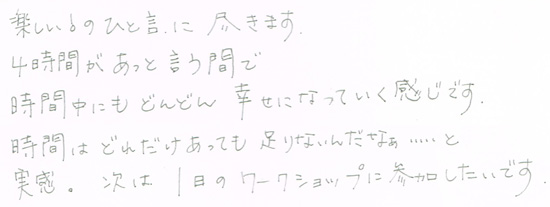 楽しい♪のひと言.に 尽きます.
4時間があっと言う間で
時間中にもどんどん 幸せになっていく感じです.
時間はどれだけあっても 足りないんだなぁ……と
実感。 次は 1日のワークショップに参加したいです.